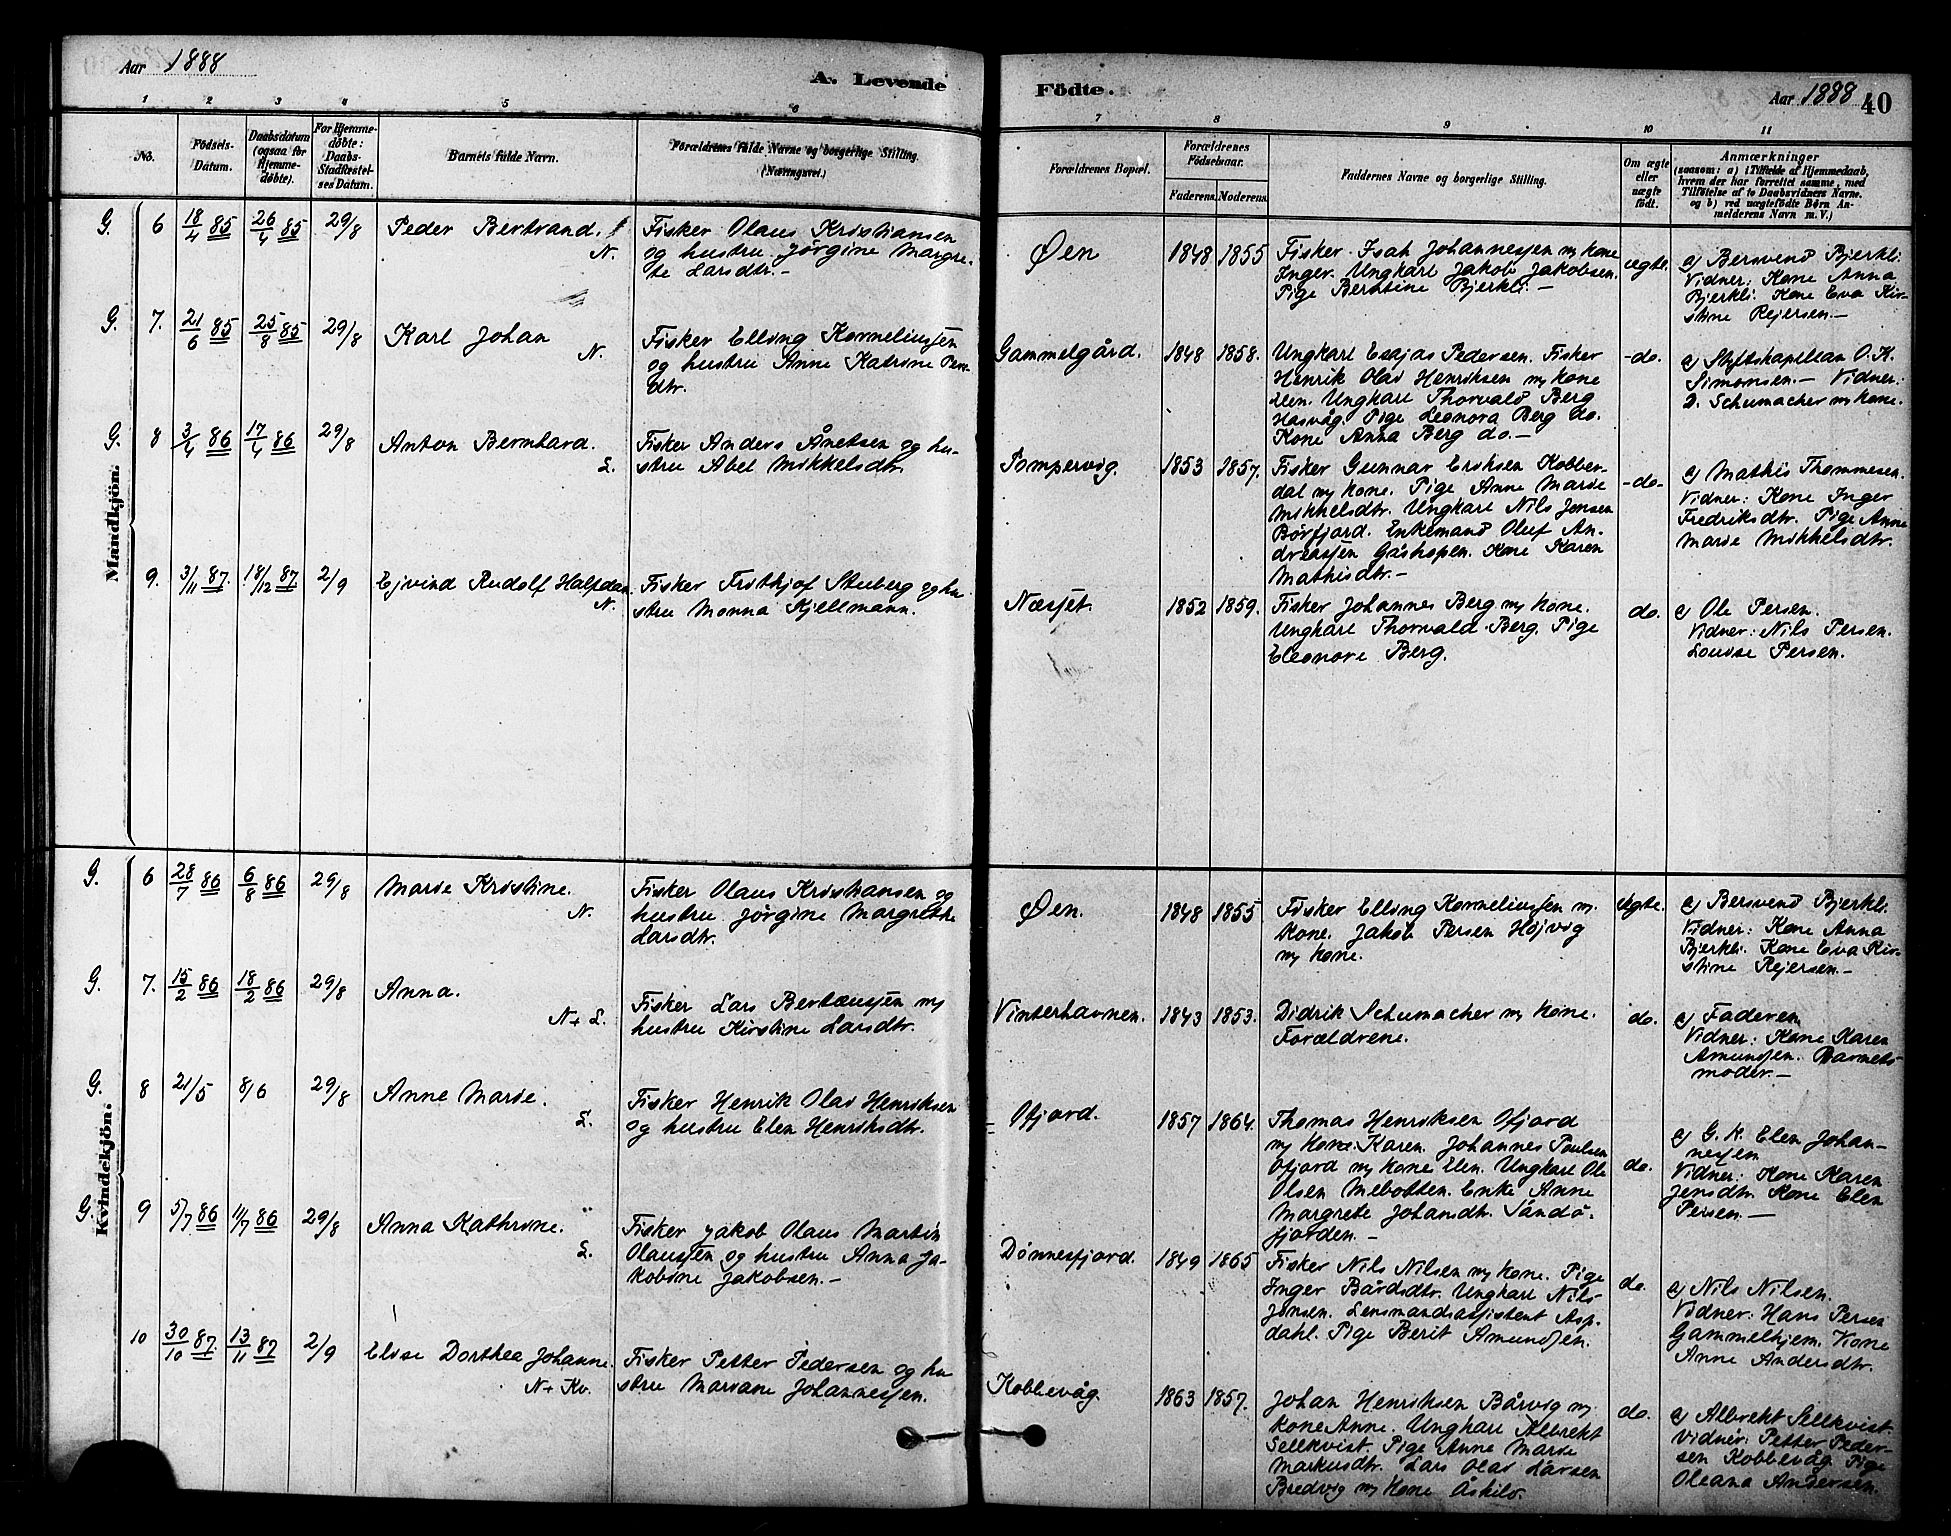 Aar 1888
A. Levende
1 2 3 4 5 6
No.
Födsels-
Datum.
Daabsdatum
(ogsaa for
Hjemme-
døbte).
For Hjemme-
døbte:
Daabs-
Stadfæstel-
ses Datum.
Barnets fulde Navn.
Forældrenes fulde Navne og borgerlige Stilling.
(Næringsvei.)
Mandkjön.
G. 6 18/4 85 26/4 85 29/8 Peder Bertrand. Fisker Olaus Kristiansen
N. og hustru Jörgine Margre-
te Larsdtr.-
G. 7. 21/6 85 25/8 85 29/8 Karl Johan Fisker Elling Korneliussen
N. og hustru Anne Katrine Pers-
dtr.
G. 8 3/4 86 17/4 86 29/8 Anton Bernhard. Fisker Anders Ånetsen og hu-
L. stru Abel Mikkelsdtr.
9. 3/11 87. 18/12 87 2/9 Ejvind Rudolf Halfdan Fisker Frithjof Stuberg og hu
N. stru Monna Kjellmann.
Kvindekjön.
G. 6 28/7 86 6/8 86 29/8 Marie Kristine. Fisker Olaus Kristiansen og
N. hustru Jörgine Margrethe
Larsdtr.
G. 7. 15/2 86 18/2 86 29/8 Anna. Fisker Lars Bertæussen m/
N+L. hustru Kirstine Larsdtr.
G. 8 21/5 8/6 29/8 Anne Marie. Fisker Henrik Olai Henriksen
L. og hustru Elen Henriksdtr.
G 9 5/7 86 11/7 86 29/8 Anna Kathrine. Fisker Jakob Olaus Martin
L. Olaussen og hustru Anna Ja-
kobine Jakobsen.-
10 30/10 87. 13/11 87 2/9 Elise Dorthea Johanne. Fisker Petter Pedersen og hu
N+Kv. stru Mariane Johannessen.
Födte.
Aar 1888 40
7 8 9 10 11
Forældrenes Bopæl.
Forældrenes
Födselsaar.
Faderens. Moderens.
Faddernes Navne og borgerlige Stilling.
Om ægte
eller
uægte
født.
Anmærkninger
(saasom: a) i Tilfælde af Hjemmedaab,
hvem der har forrettet samme, med
Tilföielse af to Daabsvidners Navne.
og b) ved uægtefödte Börn An-
melderens Navn m. V.)
Øen 1848 1855 Fisker Isak Johannessen m/ kone
Inger. Ungkarl Jakob Jakobsen.
Pige Berntine Bjerkli.-
ægte.
a) Bersvend Bjerkli.
Vidner: Kone Anna
Bjerkli. Kone Eva Kir-
stine Rejersen.-
Gammelgård. 1848 1858. Ungkarl Esajas Pedersen. Fisker
Henrik Olai Henriksen m/ kone
Elen. Ungkarl Thorvald Berg
Hasvåg. Pige Leonora Berg do.
Kone Anna Berg do.-
-do.
a) Stiftskapellan O. K.
Simonsen.- Vidner:
D. Schumacher m/ kone.
Pompervig. 1853 1857. Fisker Gunnar Eriksen Kobber-
dal m/ kone. Pige Anne Marie
Mikkelsdtr. Ungkarl Nils Jensen
Börfjord. Enkemand Oluf An-
dreassen Gåshopen. Kone Karen
Mathisdtr.-
-do-
a) Mathis Thommesen.
Vidner: Kone Inger
Fredriksdtr. Pige Anne
Marie Mikkelsdtr.
Næsjet. 1852 1859. Fisker Johannes Berg m/ kone.
Ungkarl Thorvald Berg. Pige
Eleonore Berg.
do.
a) Ole Persen.
Vidner: Nils Persen.
Louise Persen.
Øen. 1848 1855 Fisker Elling Korneliussen m.
kone. Jakob Persen Höjvig
m/ kone.
Ægte.
a) Bersvend Bjerkli.
Vidner: Kone Anna
Bjerkli. Kone Eva Kir-
stine Rejersen.-
Vinterhavnen. 1843 1853. Didrik Schumacher m/ kone.
Forældrene.
do.
a) Faderen
Vidner: Kone Karen
Amundsen. Barnets
moder.-
Ofjord. 1857 1864. Thomas Henriksen Ofjord
m/ kone Karen. Johannes Poulsen
Ofjord m/ kone Elen. Ungkarl Ole
Olsen Mebotten. Enke Anne
Margrete Johansdtr. Sandö-
fjorden.-
do.
a) G. K. Elen Johan-
nessen
Vidner: Kone Karen
Jensdtr. Kone Elen
Persen.-
Dönnesfjord. 1849 1865 Fisker Nils Nilsen m/ kone. Pige
Inger Bårdsdtr. Ungkarl Nils
Jensen. Lensmandsassistent Asp-
dahl. Pige Berit Amundsen.
do.
a) Nils Nilsen.
Vidner: Hans Persen
Gammelhjem. Kone
Anne Andersdtr.
Kobbevåg. 1863 1857. Johan Henriksen Bårvig m/
kone Anne. Ungkarl Albrekt
Sellkvist. Pige Anne Marie
Markusdtr. Lars Olai Larsen
Bredvig m/ kone Åshild.
do.
a) Albrekt Sellkvist.
Vidner: Petter Peder-
sen Kobbevåg. Pige
Oleana Andersen.